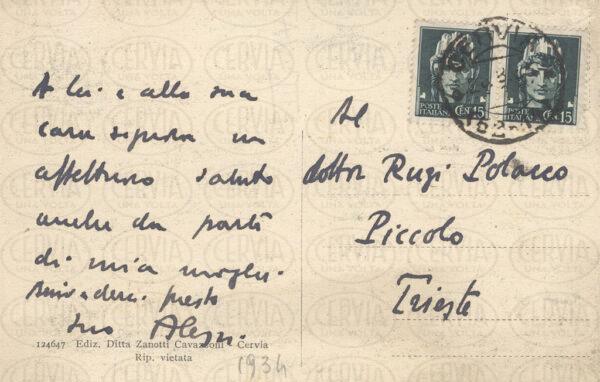 A lei e alla sua
cara signora un
affettuoso saluto
anche da parte
di mia moglie.
Arrivederci presto
suo
Al
dottor Rugi Polacco
Piccolo
Trieste
POSTE ITALIANE CEN 15
POSTE ITALIANE CEN 15
CERVIA
124647 Ediz. Ditta Zanotti Cavazzoni - Cervia
Rip. vietata
1934